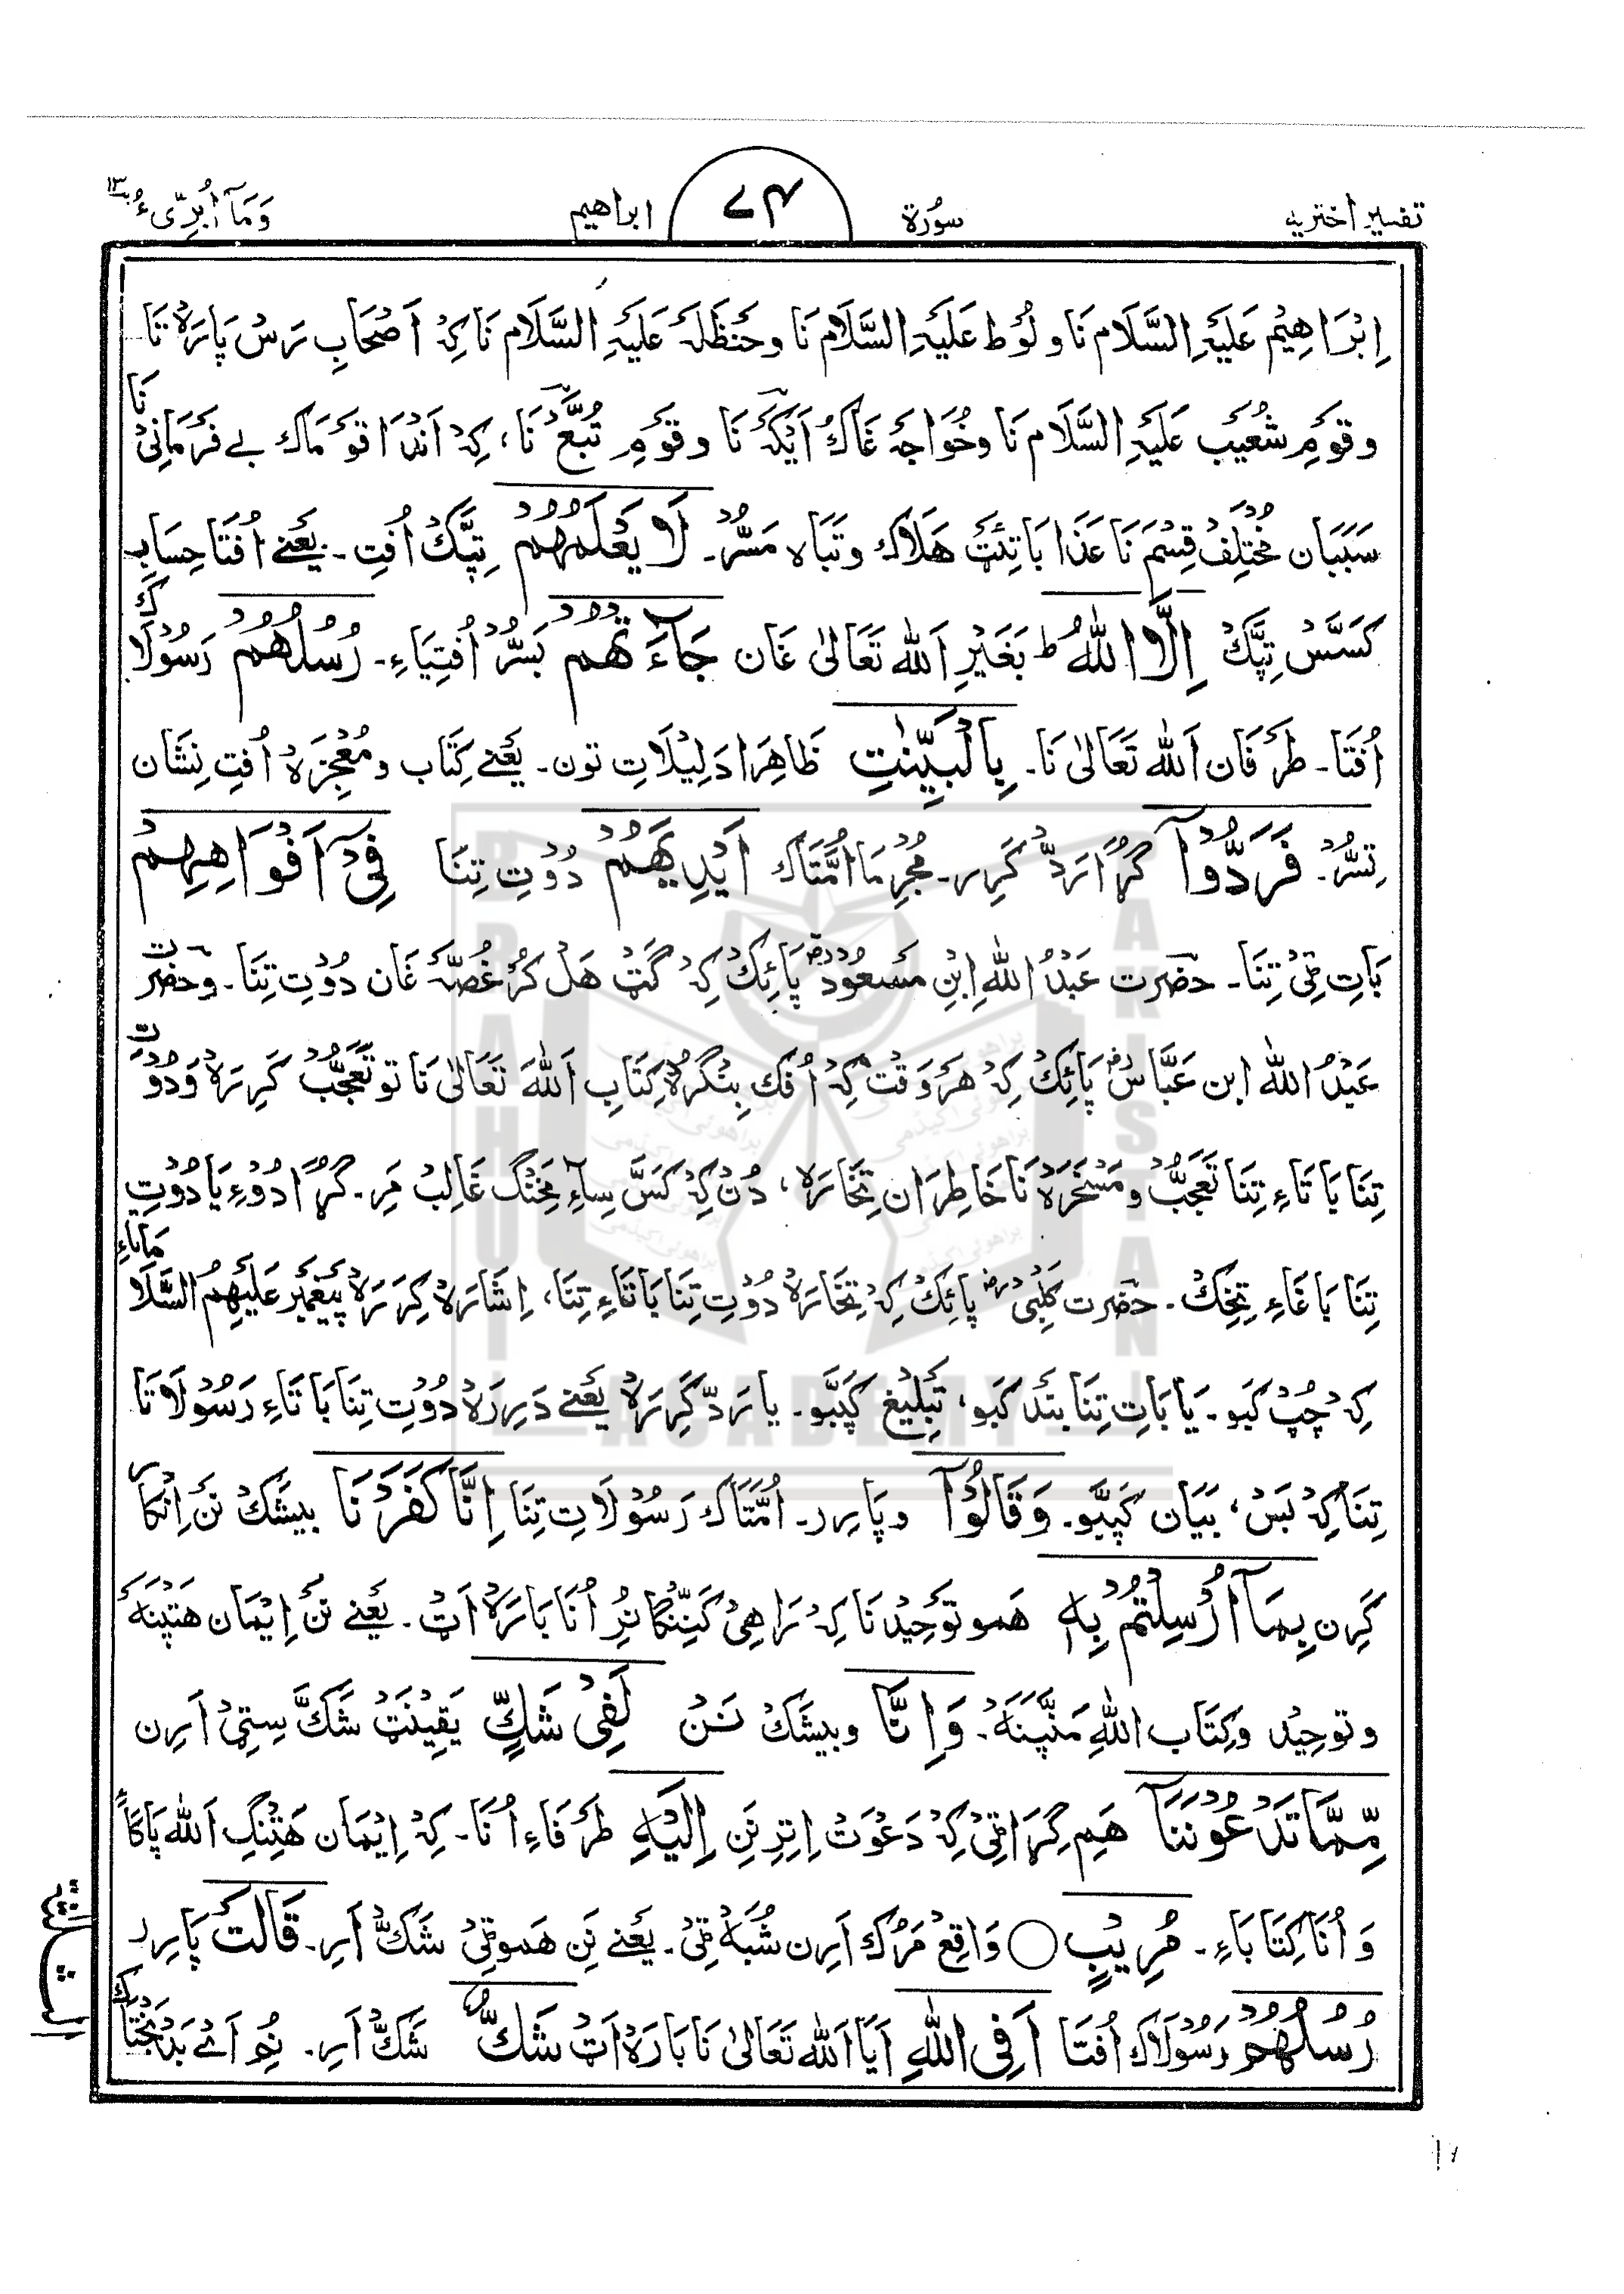 تفسیر اختریہ
سُورة
۷۴
ابراهیم
وَمَآ اُبَرِّیءُ ۱۳
اِبْرَاهِیْم عَلَیْہِ السَّلَام نَا و لُوْط عَلَیْہِ السَّلَام نَا و حَنظَلَہ عَلَیْہِ السَّلَام نَا کِہْ اَصْحَابِ رَسْ پَارَہْ تَا نَا
و قَوْمِ شُعَیْب عَلَیْہِ السَّلَام نَا و خُوَاجَہ غَاکُ اَیْکَہْ نَا و قَوْمِ تُبَّعْ نَا، کِہْ اَنْدَا قَوْمَاک بے فَرْمَانِیْ
سَبَبَان مُخْتَلِفْ قِسْمَ نَا عَذَابَاتِئَٹْ هَلَاک و تَبَاہ مَسُّرْ۔ لَا یَعْلَمُهُمْ تِپَّکْ اُفتِ۔ یَعْنے اُفتَا حِسَابِ
کَسَّسْ تِپَّکْ اِلَّا اللّٰهُ ط بَغَیْرِ اَللّٰه تَعَالیٰ غَان جَآءَتْهُمْ بَسُّرْ اُفتِیَاءِ۔ رُسُلُهُمْ رَسُوْلَاکْ
اُفتَا۔ طَرَفَان اَللّٰه تَعَالیٰ نَا۔ بِالْبَیِّنٰتِ ظَاهِرَا دَلِیْلَاتِ تون۔ یَعْنے کِتَاب و مُعْجِزَہْ اُفتِ نِشَان
تِسُّرْ۔ فَرَدُّوْآ گُرَا رَدّ کَرِر۔ مُجْرِمَا اُمَّتَاک اَیْدِیَهُمْ دُوْتِ تِنَا فِیْٓ اَفْوَاهِهِمْ
بَاتِ ٹِیْ تِنَا۔ حضرت عَبْدُ اللّٰهِ ابْنِ مَسعُودْ رض پَائِکْ کِہْ گَٹ هَلْ کُرْ غُصَّہ غَان دُوْتِ تِنَا۔ و حضرت
عَبْدُ اللّٰه ابن عَبَّاس رض پَائِکْ کِہْ هَرْ وَقْتْ کِہْ اُفْک بِنْگُرَہْ کِتَابِ اَللّٰهَ تَعَالیٰ نَا تو تَعَجُّبْ کَرِیرَہْ وَ دُوْتِ
تِنَا بَاتَاءِ تِنَا تَعَجُّبْ و مَسْخَرَہْ نَا خَاطِرَان تِخَارَہْ، دُنْ کِہْ کَسَّ سِآءِ مَخِنْگ غَالِبْ مَرِ۔ گُرَا دُوْءِ یَا دُوْتِ
تِنَا بَا غَاءِ تِخِکْ۔ حضرت کَلْبِی رض پَائِکْ کِہْ تِخَارَہْ دُوْتِ تِنَا بَاتَاءِ تِنَا، اِشَارَہْ کِرَرَہْ پَیْغَمْبَر عَلَیْهِمُ السَّلَامَاتَاءِ
کِہْ چُپْ کَبو۔ یَا بَاتِ تِنَا بَنْد کَبو، تَبْلِیْغ کَپَبو۔ یا رَدّ کَرِرَہْ یَعْنے دَرِرَہْ دُوْتِ تِنَا بَاتَاءِ رَسُوْلَاتَا
تِنَا کِہْ بَسْ، بَیَان کَپَبو۔ وَقَالُوْآ و پَارِر۔ اُمَّتَاک رَسُوْلَاتِ تِنَا اِنَّا کَفَرْنَا بیشَکْ نَن اِنْکَار
کَرِن بِمَآ اُرْسِلْتُمْ بِهٖ هَمو تَوْحِیْد نَا کِہْ رَاهِیْ کَنِنْگَانُرْ اُنَا بَارَہْ اَٹ۔ یَعْنے نَن اِیْمَان هَتِپَنَہ
و توحِیْد و کِتَاب اللّٰهِ مَنِّپَنَہْ۔ وَاِنَّا و بیشَکْ نَنْ لَفِیْ شَكٍّ یَقِیْنَٹْ شَکَّ سِٹِیْ اَرِن
مِّمَّا تَدْعُوْنَنَآ هَم گِرَا ٹِیْ کِہْ دَعْوَتْ اِتِرِ نَن اِلَیْهِ طَرَفَاءِ اُنَا۔ کِہْ اِیْمَان هَتِنْگِ اَللّٰه پَاکَاءِ
وَ اُنَا کِتَابَاءِ۔ مُرِیْبٍ ○ وَاقِعْ مَرُک اَرِن شُبَہْ ٹِیْ۔ یَعْنے نَن هَموٹِیْ شَکّ اَرِ۔ قَالَتْ پَارِر
رُسُلُهُمْ رَسُوْلَاک اُفتَا اَفِی اللّٰهِ اَیَا اَللّٰه تَعَالیٰ نَا بَارَہْ اَٹْ شَكٌّ شَکّ اَرِ۔ نُم اَے بَدْبَخْتَاکْ